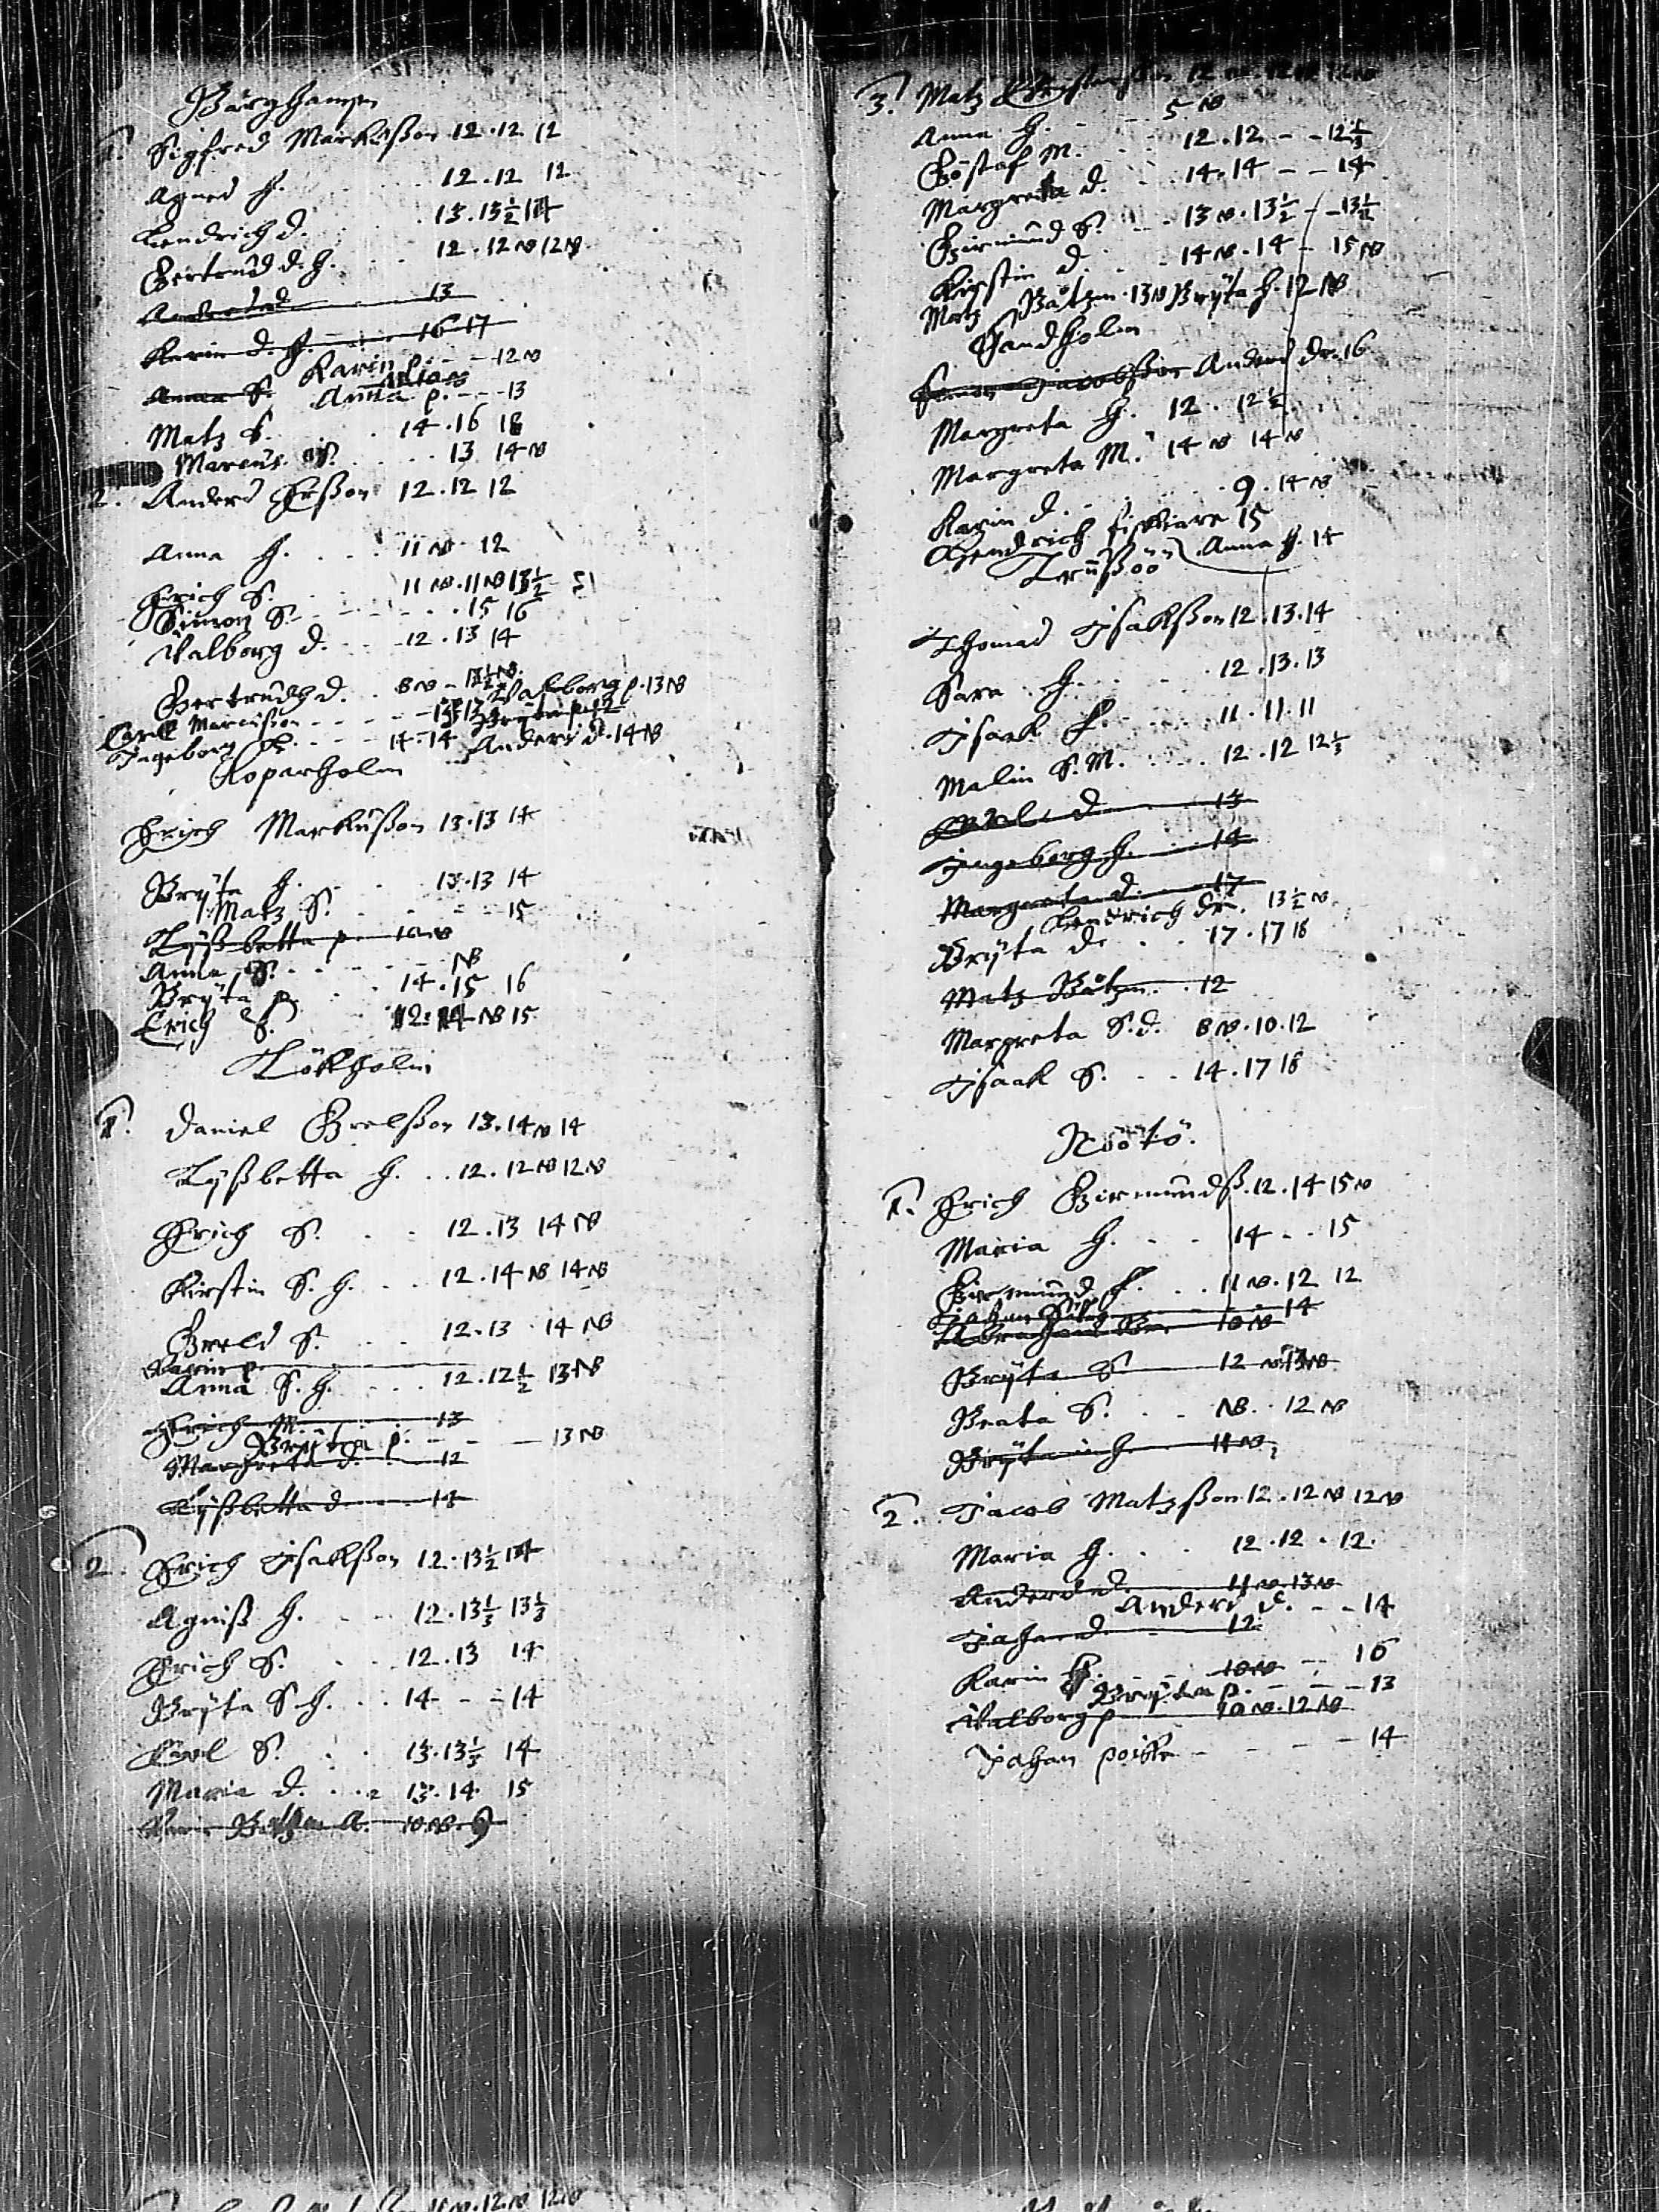 Bärghamn
1. Sigfred Markusson 12.12 12
Agned H. 12.12 12
Hendrich d. 13.13½ 14
Gertrud d. H. 12.12 NB 12 NB
Anders d. 13
Karin d. H. 16 17
Karin p. 12 NB
Anna S. Anna p. 13
Matz S. 14.16 18
Marcus S. 13 14 NB
2. Anders Erßon 12.12 12
Anna H. 11 NB 12
Erich S. 11 NB. 11 NB 13½
Simon S. 15 16
Valborg d. 12.13 14
Gertrudh d. 8 NB
Valborg p. 13 NB
Carell Marcusson 13 13 Bryta p. 12
Ingeborg H. 14.14 Anders d. 14 NB
Koparholm
Erich Markusson 13.13 14
Bryta H. 13.13 14
Matz S. 15
Lyßbetta p. 10 NB
Anna S. NB
Bryta p. 14.15 16
Erich S. 12. 14 NB 15
Lökholm
1. Daniel Grelsson 13.14 NB 14
Lyßbetta H. 12.12 NB 12 NB
Erich S. 12.13 14 NB
Kirstin S. H. 12.14 NB 14 NB
Greld S. 12.13 14 NB
Karin p.
Anna S. H. 12.12½ 13 NB
Erich M. 13
Bryta p. 13 NB
Margreta d. 12
Lyßbetta d. 14
2. Erich Isaksson 12.13½ 14
Agniß H. 12.13⅓ 13⅓
Erich S. 12.13 14
Bryta S. H. 14 - - 14
Carl S. 13.13⅓ 14
Maria d. 13.14 15
10 NB 9
3. Matz 12 NB 12 NB 12 NB
Anna H. 5 NB
Göstaf M. 12.12 - - 12⅓
Margreta d. 14.14 - - 14
Germund S. 13 NB. 13½ - - 13½
Kirstin d. 14 NB. 14 - 15 NB
Matz Båtzm. 13 NB Bryta H. 12 NB
Sandholm
Simon Jacobsson Anders dr. 16
Margreta H. 12.12½
Margreta M. 14 NB 14 NB
Karin d. 9.14 NB
Hendrich fiskiare 15
Anna H. 14
Trußöö
Thomas Isaksson 12.13.14
Sara H. 12.13.13
Isaak S. 11.11.11
Malin S. M. 12.12 12⅓
d. 13
Ingeborg H. 14
Margreta d. 17
Hendrich dr. 13½ NB
Bryta d. 17.17 18
Matz Båtzm. 12
Margreta S. d. 8 NB. 10.12
Isaak S. 14.17 18
Nöötö.
1. Erich Germundß. 12.14 15 NB
Maria H. 14 . . 15
Germund S. 11 NB. 12 12
Johan 14
10 NB
Bryta S. 12 NB 13 NB
Beata S. NB. 12 NB
Bryta H. 11 NB
2. Jacob Matzsson 12.12 NB 12 NB
Maria H. 12.12.12
Anders d. 11 NB 13 NB
Anders d. - - 14
Johan d. 12
Karin 10 NB - 16
Bryta p. - - - 13
Valborg p. 10 NB. 12 NB
Johan poike - - - - 14
12 NB 12 NB